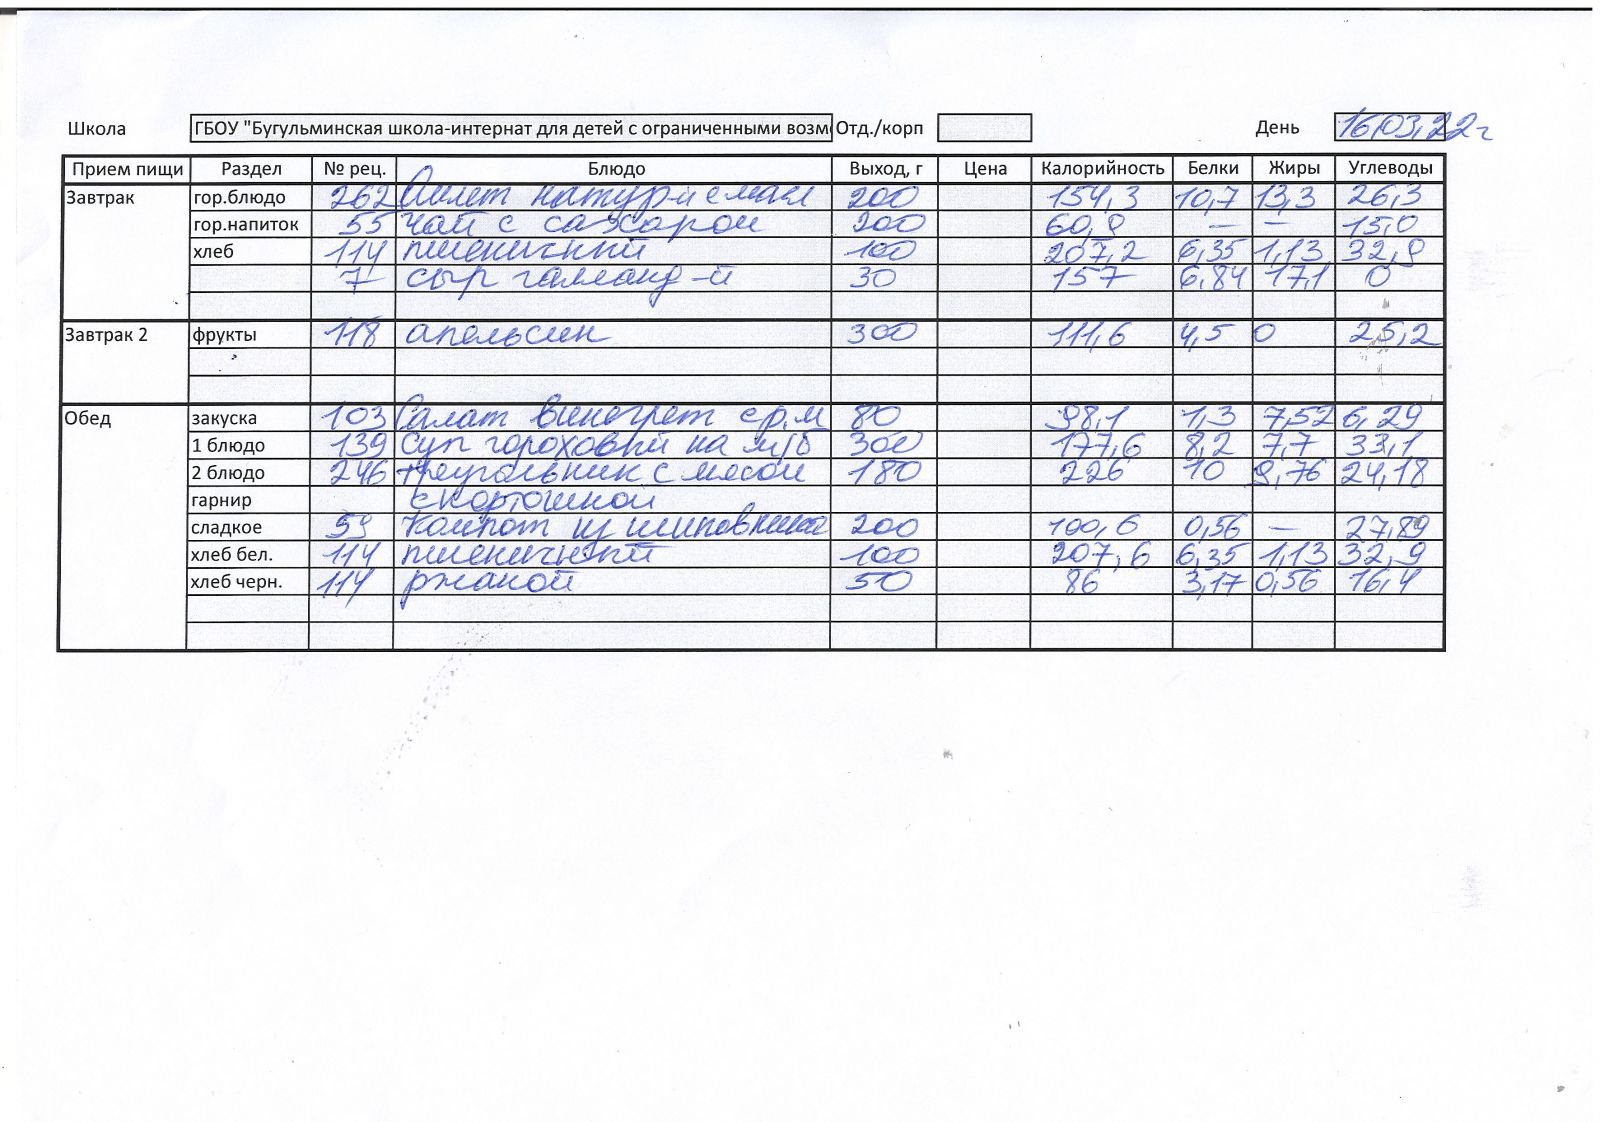 Школа ГБОУ "Бугульминская школа-интернат для детей с ограниченными возм Отд./корп День 16,03,22г
Прием пищи Раздел № рец. Блюдо Выход, г Цена Калорийность Белки Жиры Углеводы
Завтрак гор.блюдо 262 Омлет натур-й с масл 200 154,3 10,7 13,3 26,3
гор.напиток 55 чай с сахаром 200 60,0 — — 15,0
хлеб 114 пшеничный 100 207,2 6,35 1,13 32,9
7 сыр голланд-й 30 157 6,84 17,1 0
Завтрак 2 фрукты 118 апельсин 300 111,6 4,5 0 25,2
Обед закуска 103 Салат винегрет с р.м 80 98,1 1,3 7,52 6,29
1 блюдо 139 суп гороховый на м/б 300 177,6 8,2 7,7 33,1
2 блюдо 246 треугольник с мясом 180 226 10 9,76 24,18
гарнир с картошкой
сладкое 59 Компот из шиповника 200 100,6 0,56 — 27,89
хлеб бел. 114 пшеничный 100 207,6 6,35 1,13 32,9
хлеб черн. 114 ржаной 50 86 3,17 0,56 16,4